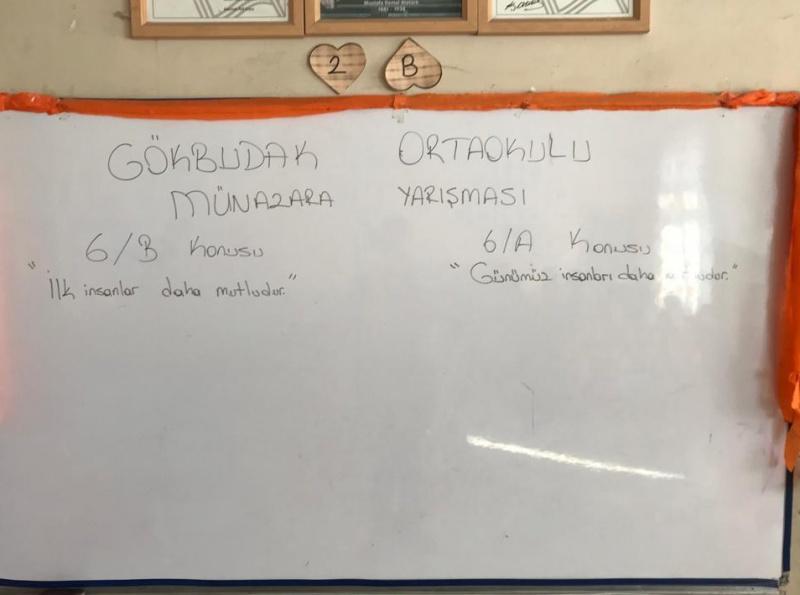 Mustafa Kemal Atatürk
1881 - 1938
2 B
GÖKBUDAK ORTAOKULU
MÜNAZARA YARIŞMASI
6/B Konusu
"İlk insanlar daha mutludur."
6/A Konusu
"Günümüz insanları daha mutludur."